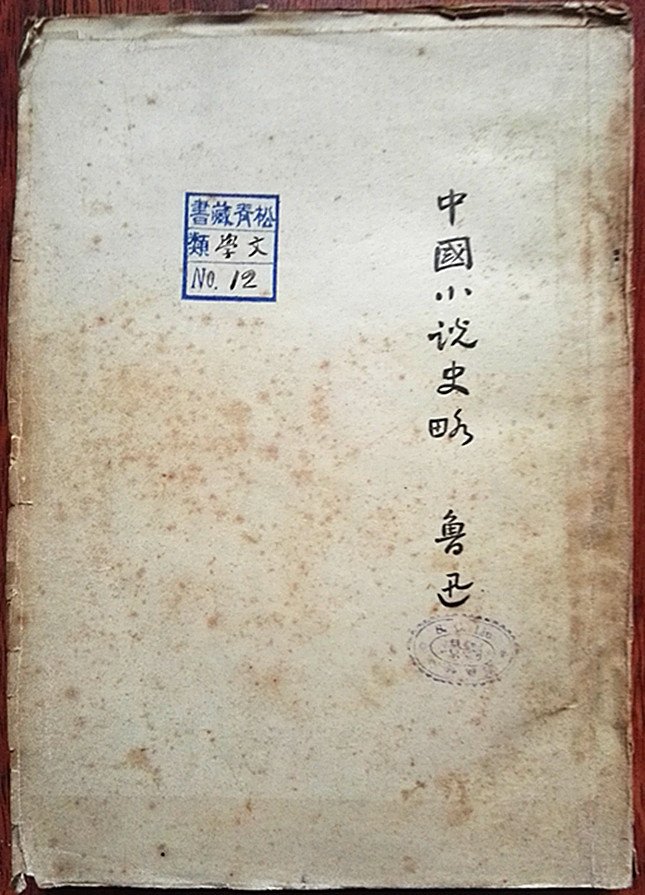 中國小説史略 魯迅
松斉藏書
文學類
No. 12